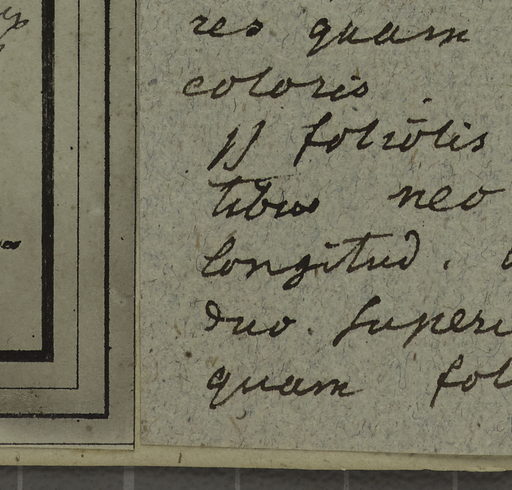 res quam
coloris
foliolis
tibus neo
longitud.
duo superi
quam fol